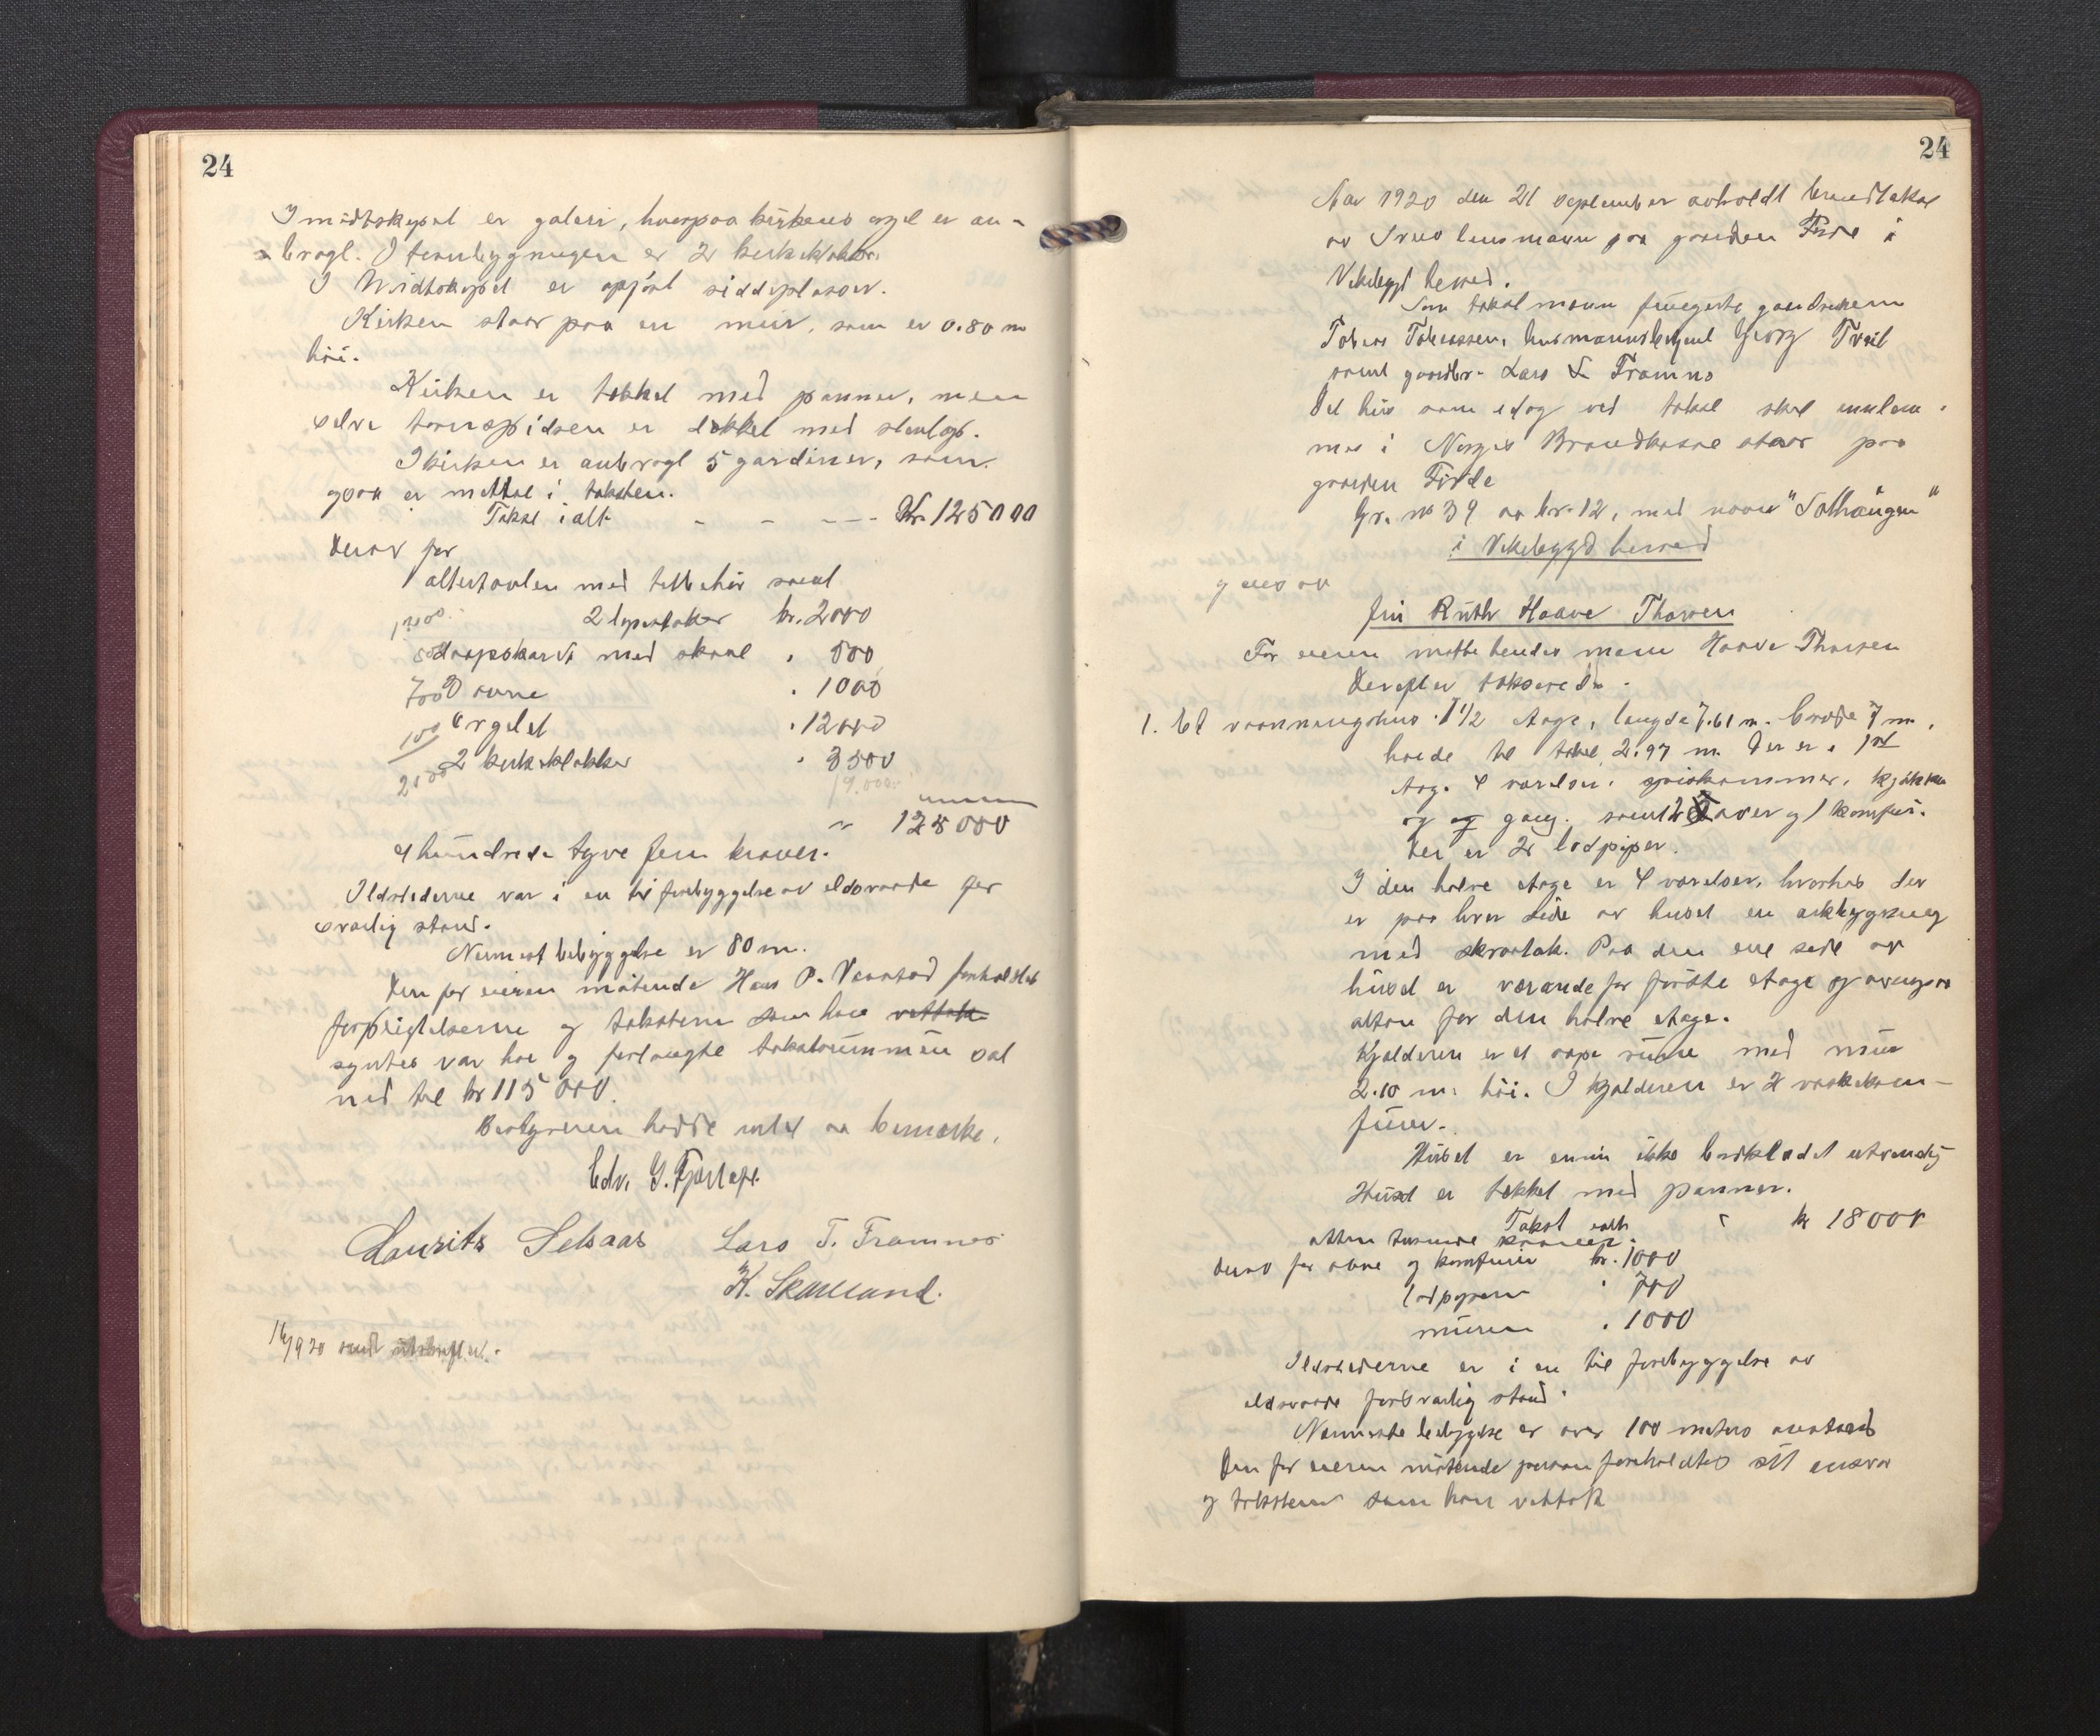 24
I midtskipet er galeri, hvorpaa kirkens orgel er an-
bragt. I taarnbygningen er 2 kirkeklokker.
I Midtskipet er opført siddeplasser.
Kirken staar paa en mur, som er 0.80 m
høi.
Kirken er tekket med panner, men
selve taarnspidsen er dekket med
I kirken er anbragt 5 gardiner, som
ogsaa er mettat i taksten.
Takst ialt - - - - - Kr. 125000
Derav for
altertavlen med tilbehør samt
1200. 2 lysestaker kr. 2000
500 daapskaret med skaal " 500
700 ovne " 1000
100 orgelet " 12000
2000 2 kirkeklokker " 3500
19.000
" 125000
et hundrede tyve fem kroner.
Ildstederne var i en til forebyggelse av eldsvaade for
svarlig stand.
Nærmest bebyggelse er 80 m.
Den for eieren møtende Hans P. Vaastad foreholdtes
forpligtelserne og taksterne som han vettok
syntes var høi og forlangte takstsummen sat
ned til kr 115 000.
Bestyreren hadde intet aa bemerke.
Edv. G. Fjortoft.
Laurits Selsaas Lars T. Framnes
K. Skaaland.
1920 sendt utskrift
24
Aar 1920 den 21 september avholdt brandtakst
av Sveio lensmann paa gaarden Førde i
Vikebygd herred.
Som takstmænn fungerte gaardbrukerne
Tobias Tobiassen, lensmannsbetjent Georg Tveit
samt gaardbr. Lars T. Framnes
Det hus som idag ved takst skal innlem-
mes i Norges Brandkasse staar paa
gaarden Førde
Gr. no 39 av br. 12, med navn "Solhaugen"
i Vikebygd herred
og eies av
fru Ruth Haave Thorsen
For eieren møtte hendes mann Haave Thorsen
Derefter takseredes.
1. Et vaaningshus. 1½ etage, længde 7.61 m. brede 7 m.
høide til taket 2.97 m. Der er i 1st
etage 4 værelser, spiskammer, kjøkken
og gang. samt 2 ovner og 1 komfur.
Der er 2 lodpiper.
I den halve etage er 4 værelser, hvorhos der
er paa hver side av huset en arkbygning
med skraatak. Paa den ene side av
huset er veranda for første etage og ovenpaa
altan for den halve etage.
Kjælderen er et rum med mur
2.10 m. høi. I kjælderen er 2 vaskekom-
fürer.
Huset er ennu ikke bordklædet utvendig
Huset er tekket med panner.
Takst ialt " kr 18000
atten tusende kroner.
Derav for ovne og komfurer kr. 1000
lodpiperne " 700
muren " 1000
Ildstederne er i en til forebyggelse av
eldsvaade forsvarlig stand.
Nærmeste bebyggelse er over 100 meters avstand
Den for eieren møtende person foreholdtes sit ansvar
og taksterne som han vettok